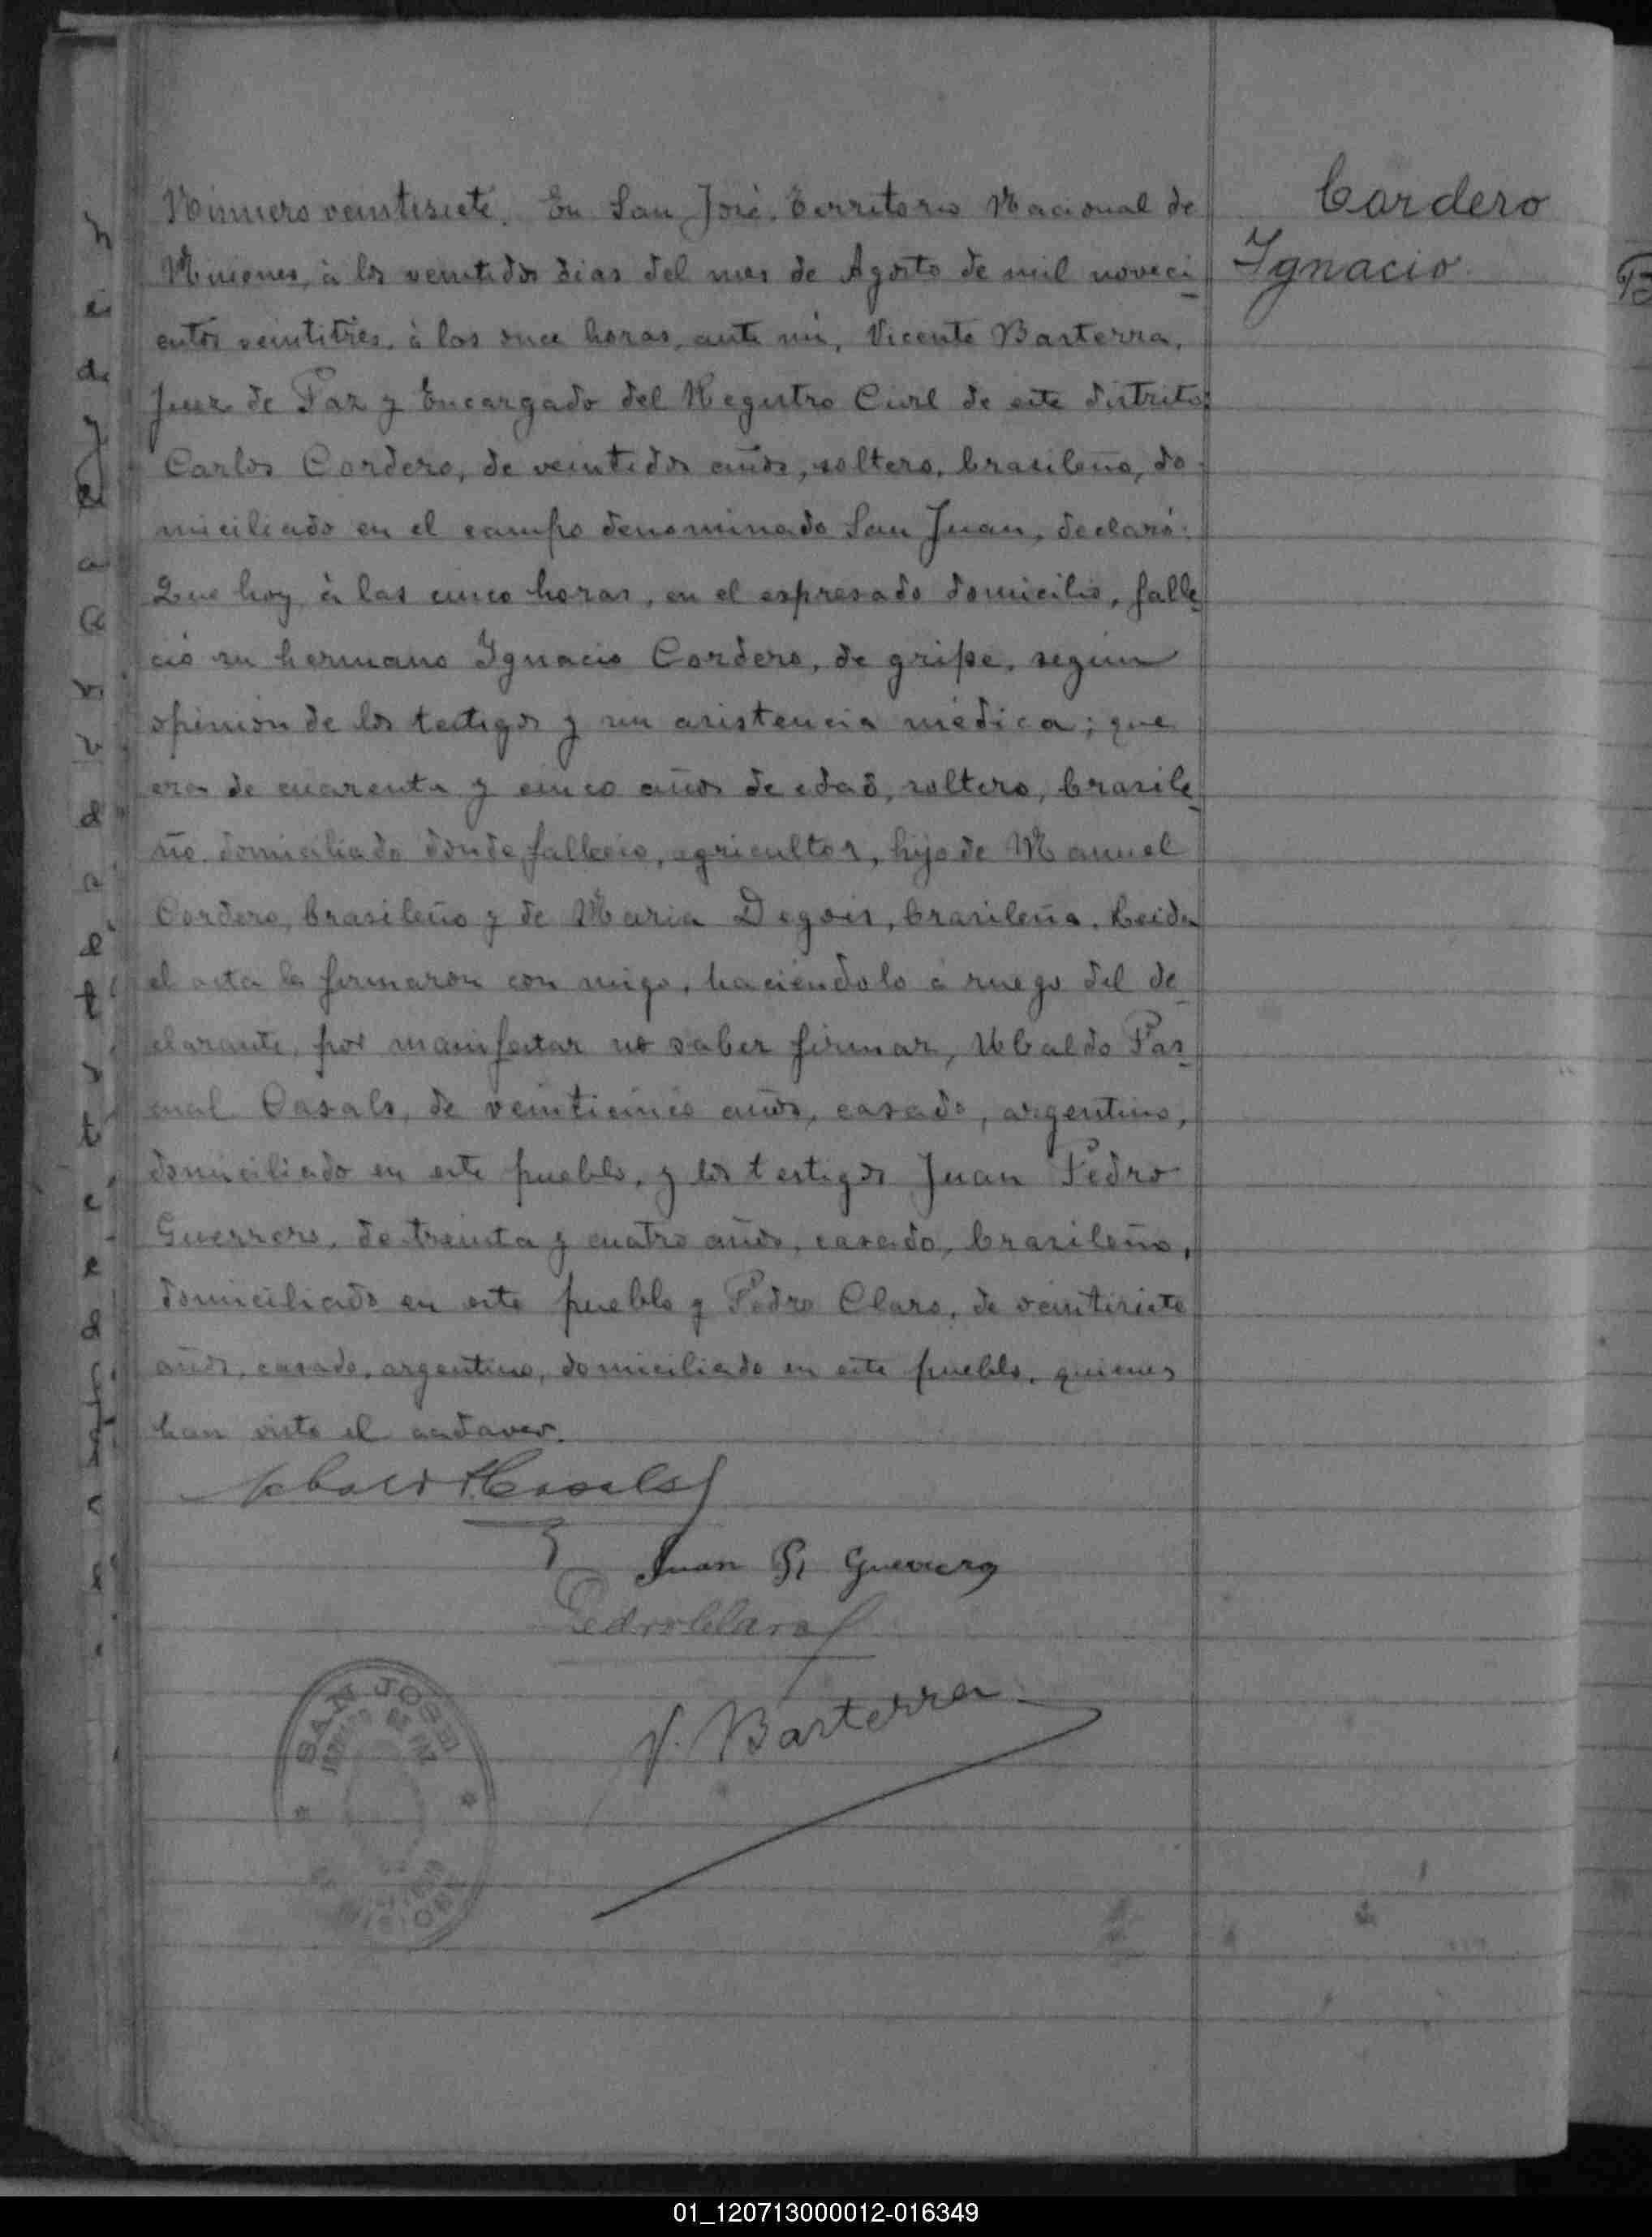 Cordero
Ignacio
Número veintisiete. En San José, Territorio Nacional de
Misiones, à los veintidos dias del mes de Agosto de mil noveci
entos veintitrés, à las once horas, ante mi, Vicente Barterra,
Juez de Paz y Encargado del Registro Civil de este distrito;
Carlos Cordero, de veintidos años, soltero, brasileño, do
miciliado en el campo denominado San Juan, declaró:
Que hoy, à las cinco horas, en el expresado domicilio, falle
ció su hermano Ignacio Cordero, de gripe, según
opinión de los testigos y sin asistencia médica; que
era de cuarenta y cinco años de edad, soltero, brasile
ño, domiciliado donde falleció, agricultor, hijo de Manuel
Cordero, brasileño y de Maria Degois, brasileña. Leida
el acta la firmaron con migo, haciéndolo à ruego del de
clarante, por manifestar no saber firmar, Ubaldo Pas
cual Casals, de veinticinco años, casado, argentino,
domiciliado en este pueblo, y los testigos Juan Pedro
Guerrero, de treinta y cuatro años, casado, brasileño,
domiciliado en este pueblo y Pedro Claro, de veintisiete
años, casado, argentino, domiciliado en este pueblo, quienes
han visto el cadaver.
Casals
Juan P. Guerrero
Pedro Claro
V. Barterra
SAN JOSE
JUZGADO DE PAZ
MISIONES
01_120713000012-016349